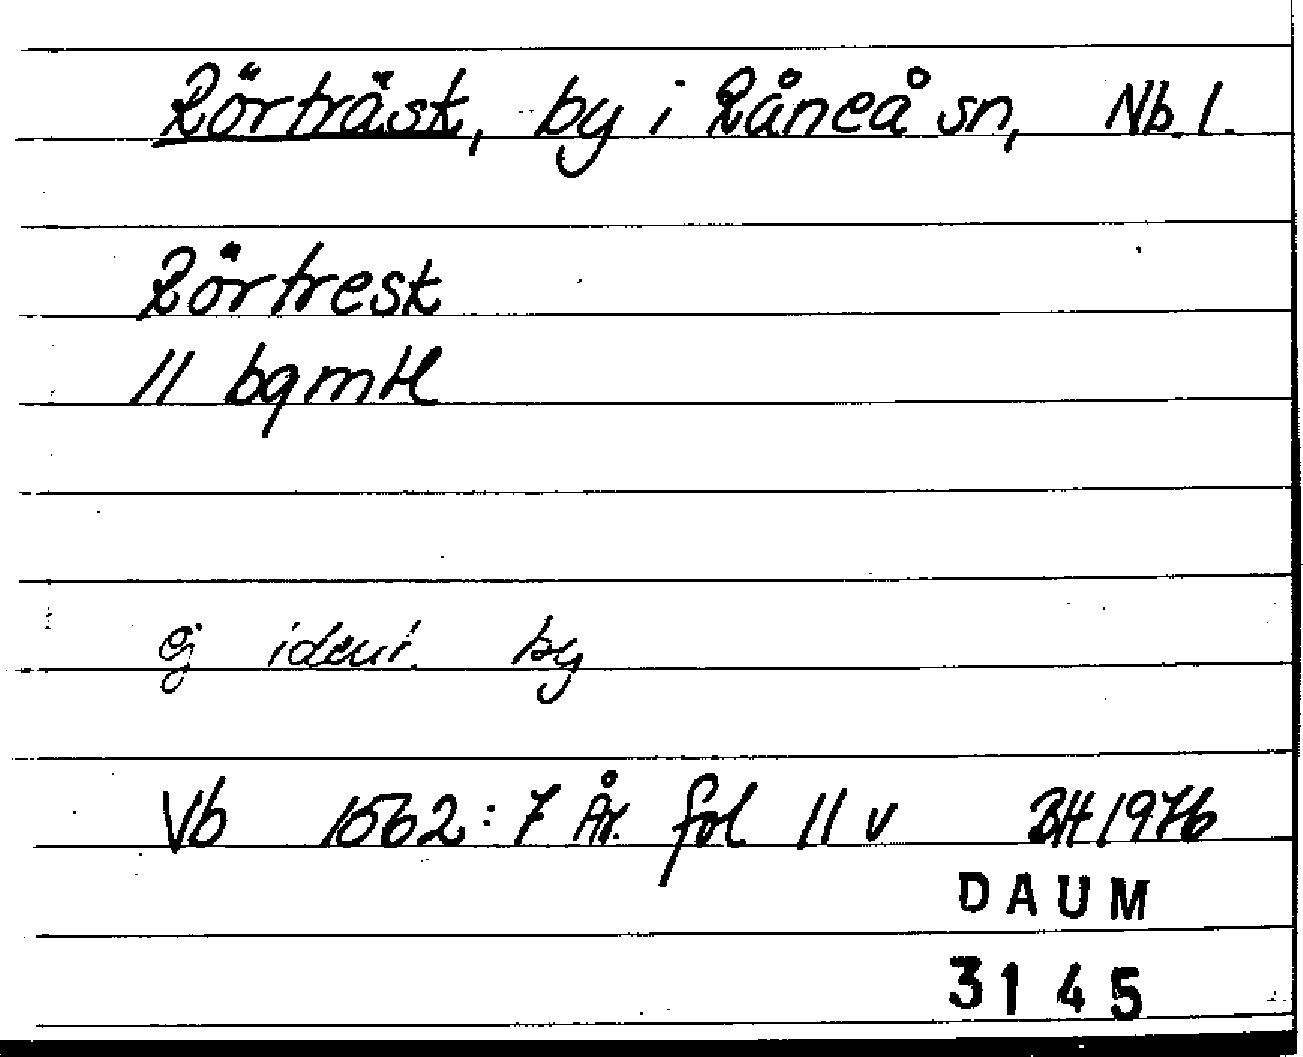 Rörträsk, by i Råneå sn, Nb. l.
Rörtrest
11 bqmtl
ej ident. by
Vb 1562:7 År. fol 11 v BH 1976
DAUM
3145